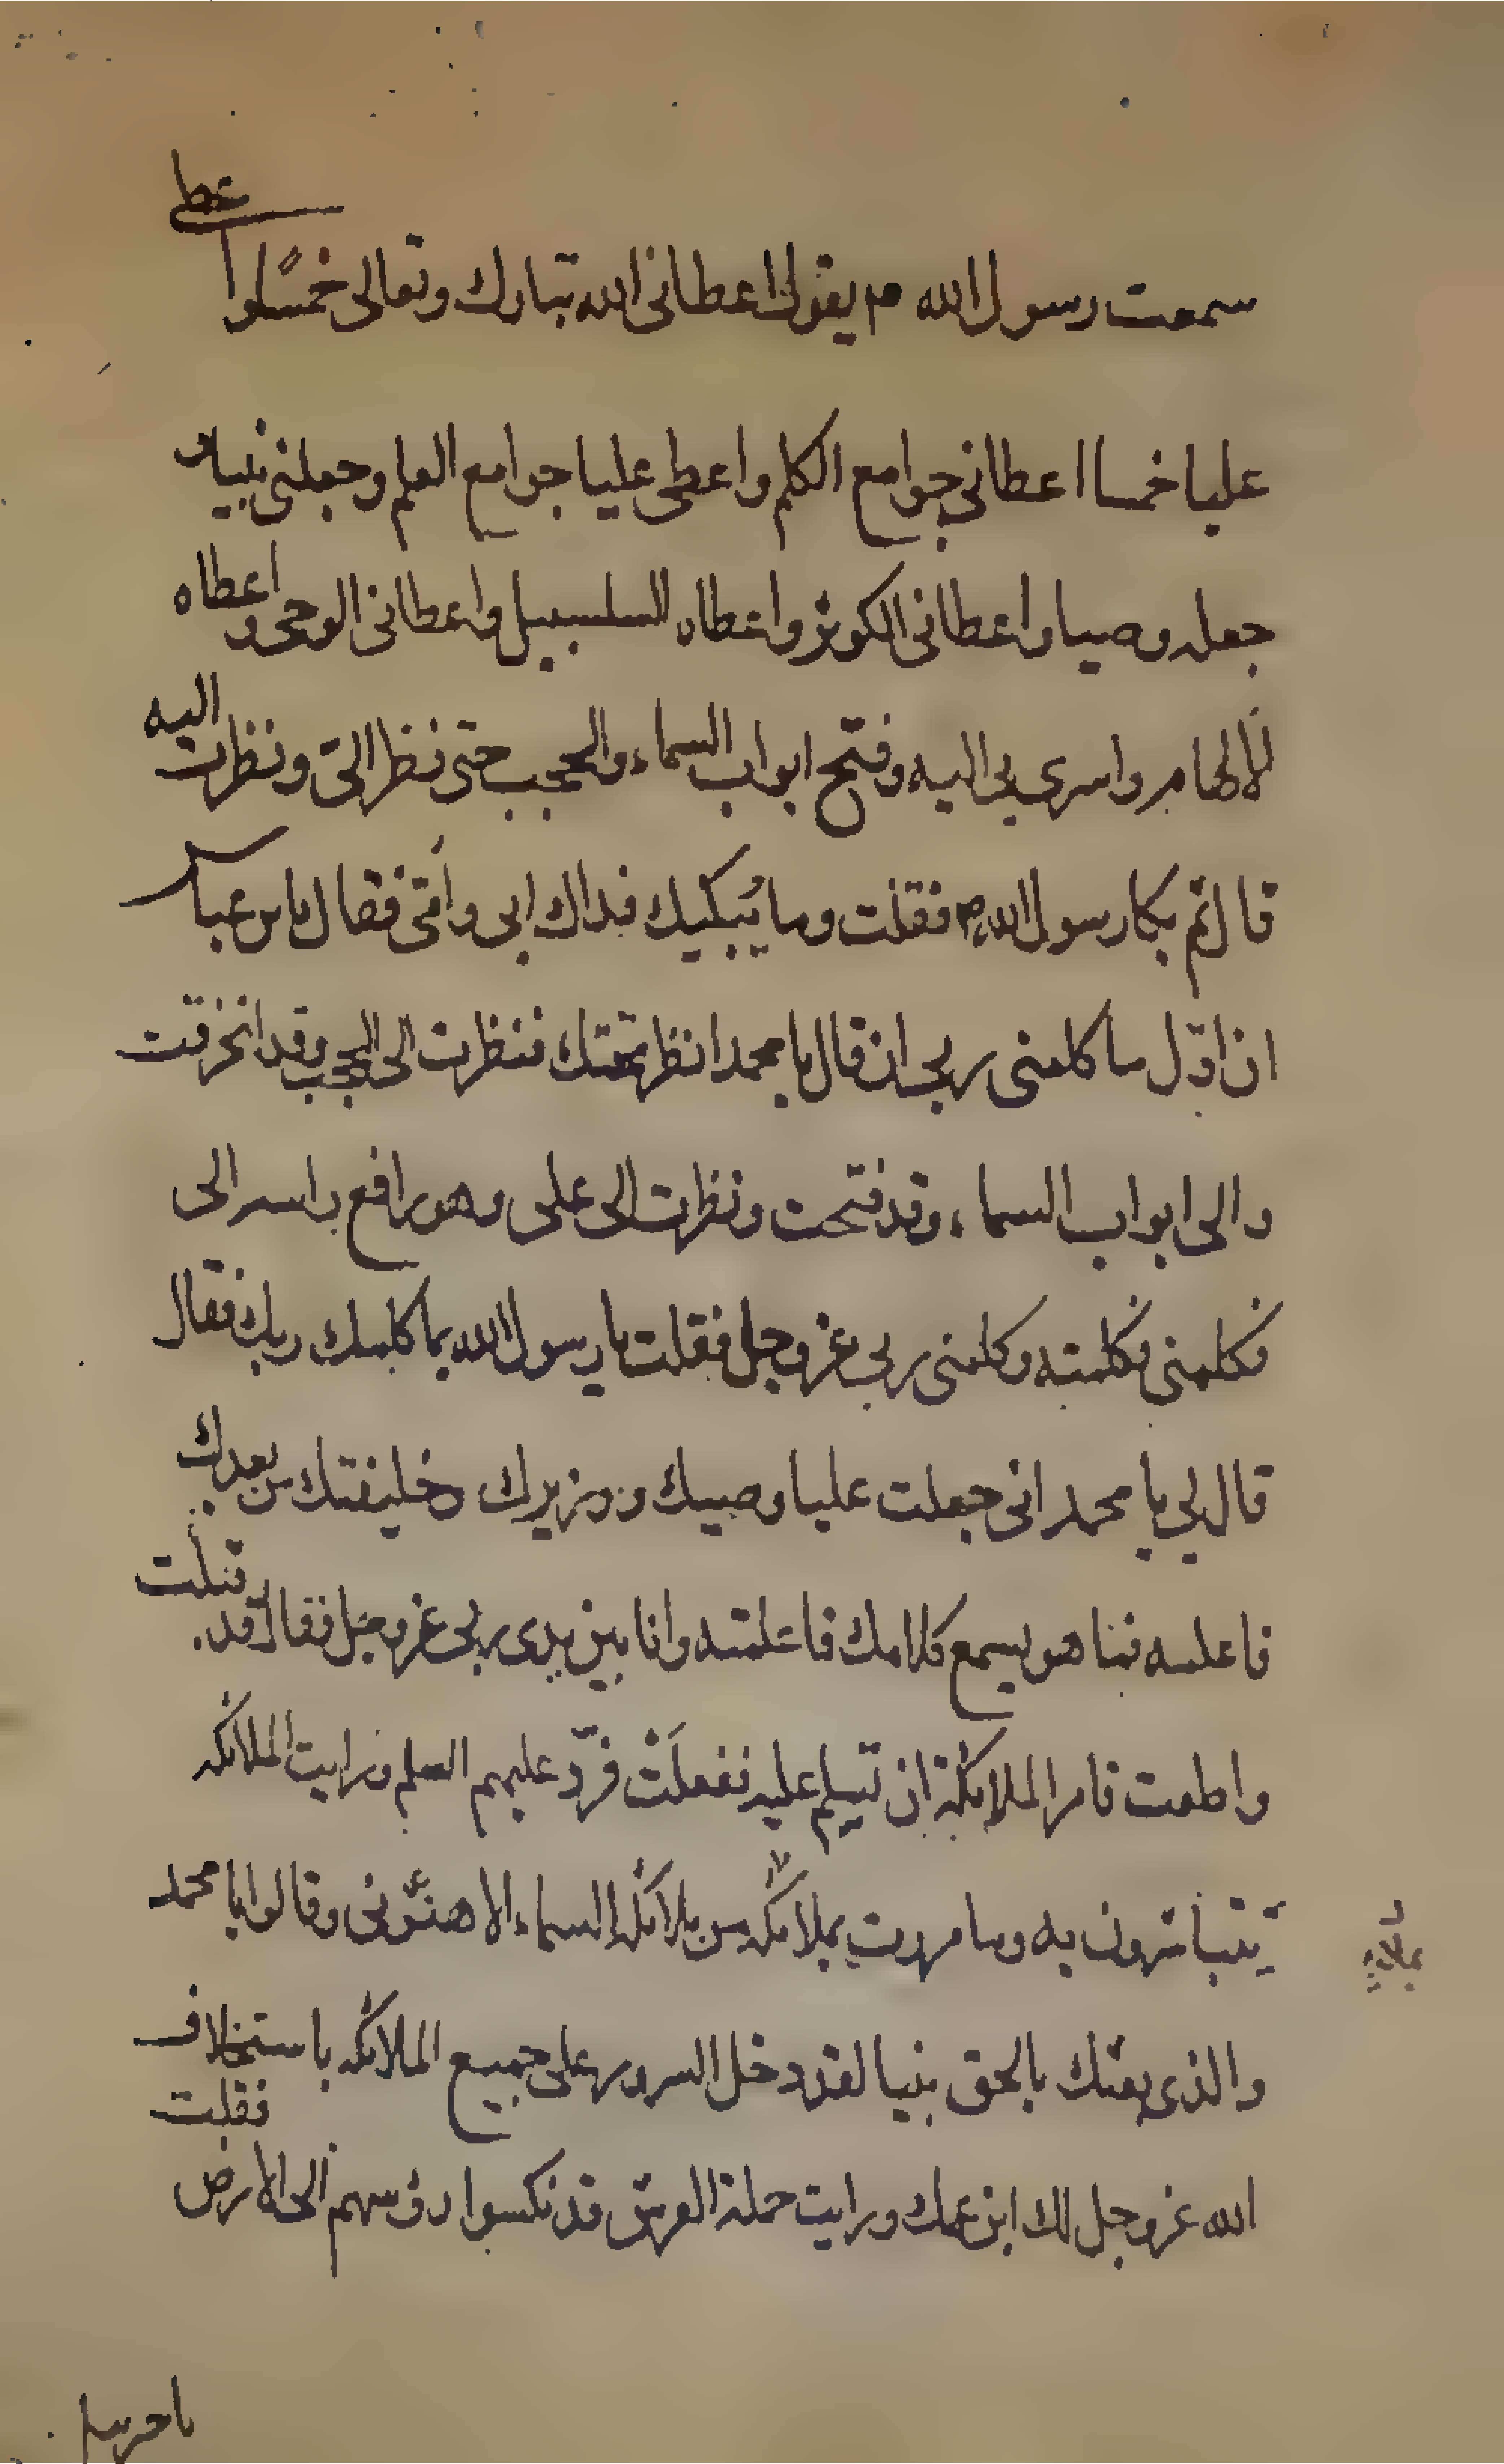 سمعت رسول الله ص يقول اعطانى الله تبارك وتعالى خمسا واعطى
عليا خمسا اعطانى جوامع الكلم واعطى عليا جوامع العلم وجعلنى نبيا و
جعله وصيا واعطانى الكوثر واعطاه السلسبيل واعطانى الوحى و اعطاه
الالهام واسرى بى اليه وفتح ابواب السماء والحجب حتى نظر الىّ ونظرت اليه
قال ثم بكا رسول الله ص فقلت وما يُبكيك فداك ابى وأمّى فقال يابن عباس
ان اوّل ما كلمنى ربى ان قال يا محمد انظر تحتك فنظرت الى الحجب وقد انخرقت
والى ابواب السماء وقد فتحت ونظرت الى على وهو رافع راسه الى
فكلمنى فكلمته وكلمنى ربى عز وجل فقلت يا رسول الله بما كلمك ربك فقال
قال لى يا محمد انى جعلت عليا وصيك ووزيرك وخليفتك من بعدك
فاعلمه فها هو يسمع كلامك فاعلمته وانا بين يدى ربى عز وجل فقال لى قد قبلت
واطعت فامر الملائكة ان تسلم عليه ففعلَتْ فردّ عليهم السلم ورايت الملائكه
يتباشرون به وما مررت بملائكه من ملائكة السماء الا هنّؤنى وقالوا يا محمد
بملاء
والذى بعثك بالحق نبيا لقد دخل السرور على جميع الملائكه باستخلاف
الله عز وجل لك ابن عمك ورايت حملة العرش قد نكسوا رؤسهم الى الارض فقلت
يا جبرئيل